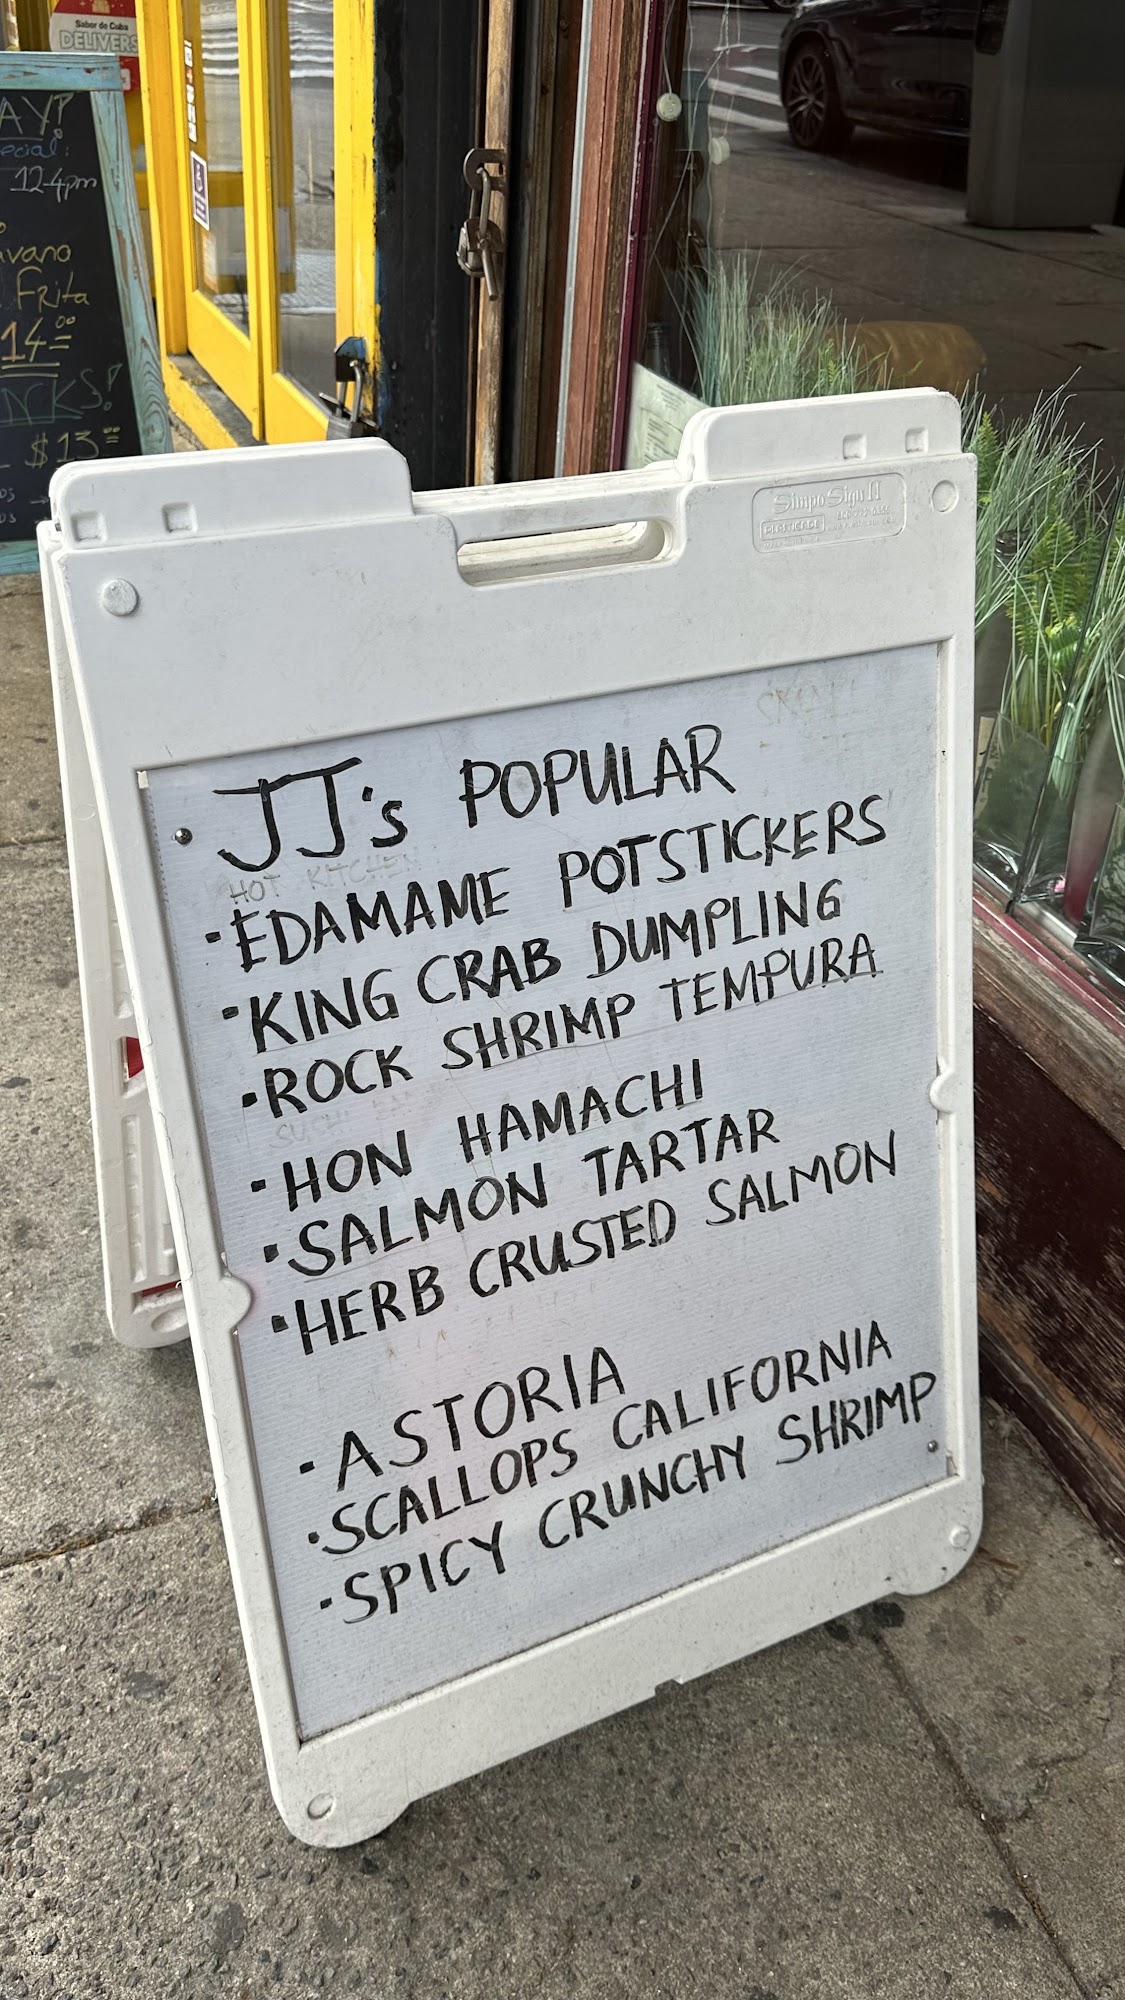 Sabor de Cuba
DELIVERS
AY!
ecial:
12-4pm
vano
Frita
14.00
NCKS!
$13
Simpo Sign II
JJ's POPULAR
HOT KITCHEN
• EDAMAME POTSTICKERS
• KING CRAB DUMPLING
• ROCK SHRIMP TEMPURA
• HON HAMACHI
• SALMON TARTAR
• HERB CRUSTED SALMON
• ASTORIA
• SCALLOPS CALIFORNIA
• SPICY CRUNCHY SHRIMP